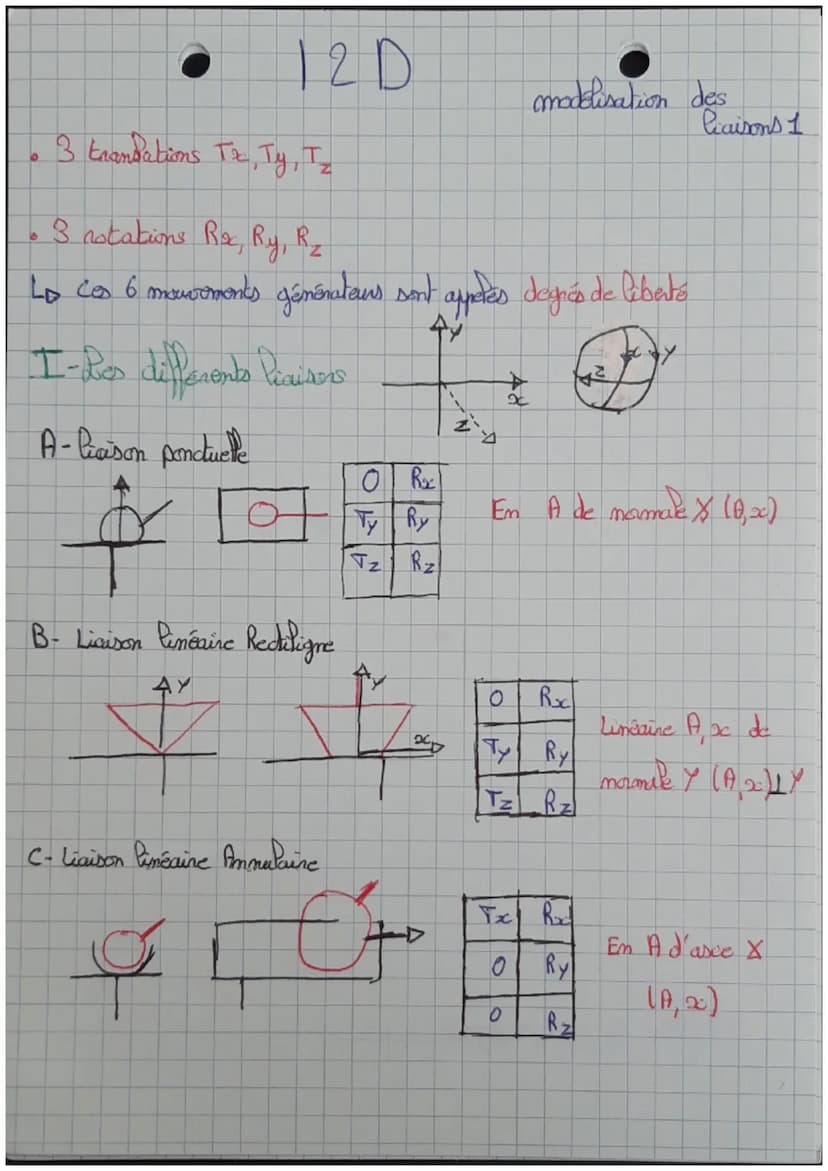 I2D
modélisation des
liaisons 1
• 3 translations Tx, Ty, Tz
• 3 rotations Rx, Ry, Rz
↳ Ces 6 mouvements générateurs sont appelés degrés de liberté
I- Les différents liaisons
y
x
z
x
y
z
A- liaison ponctuelle
0 Rx
Ty Ry
Tz Rz
En A de normale X (A,x)
B- Liaison linéaire Rectiligne
y
y
x
0 Rx
Ty Ry
Tz Rz
Linéaire A, x de
normale Y (A,x)⊥Y
C- Liaison linéaire Annulaire
Tx Rx
0 Ry
0 Rz
En A d'axe X
(A,x)